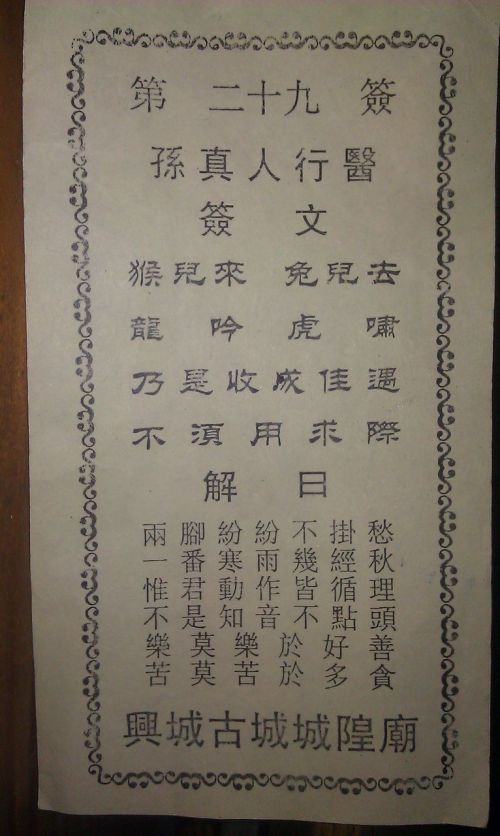 第二十九簽
孫真人行醫
簽文
猴兒來 兔兒去
龍吟虎嘯
乃是收成佳遇
不須用求際
解曰
兩腳紛紛不掛愁
一番寒雨幾經秋
惟君動作皆循理
不是知音不點頭
樂莫樂於好善
苦莫苦於多貪
興城古城城隍廟